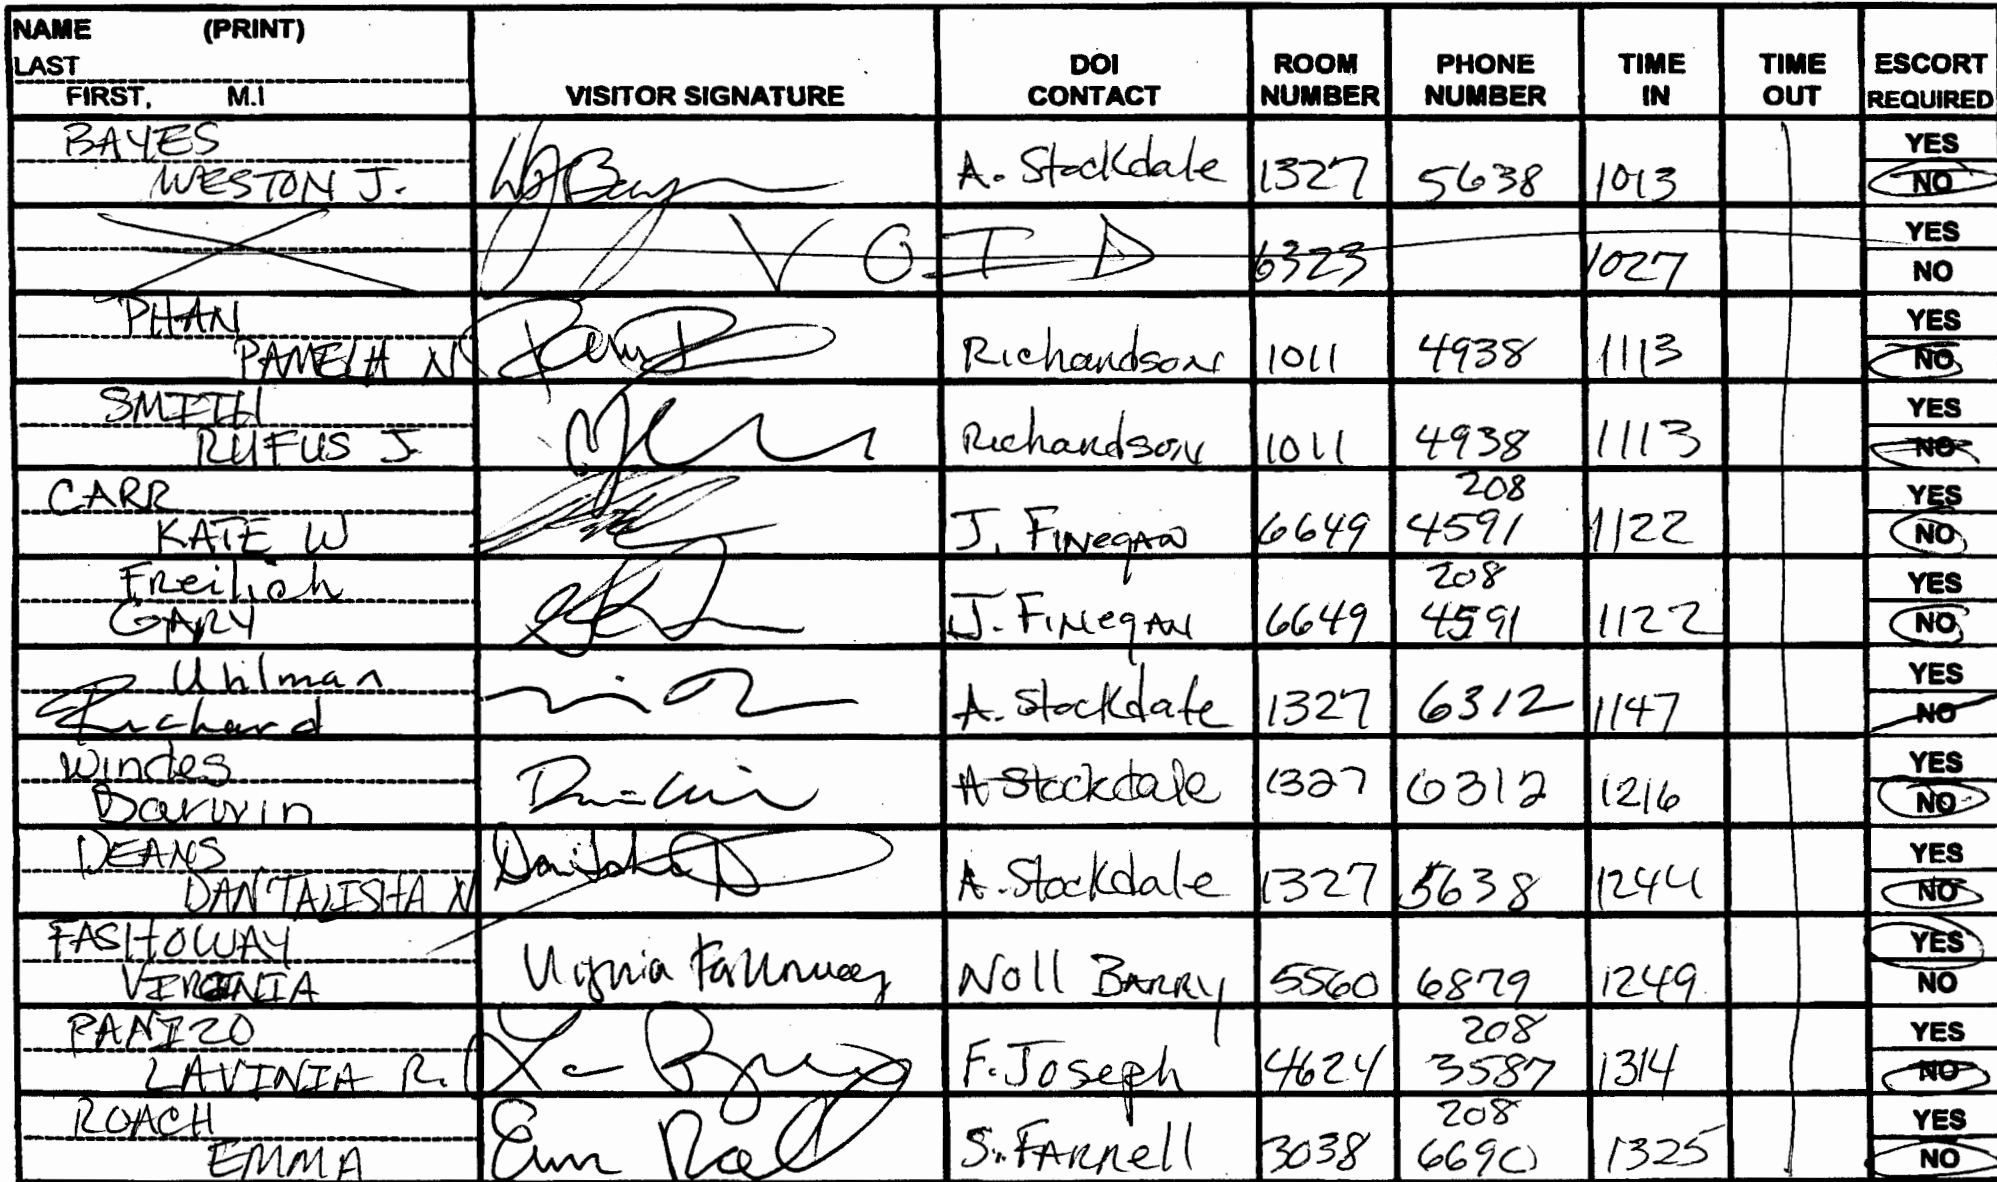 NAME (PRINT)
LAST
FIRST, M.I
VISITOR SIGNATURE
DOI CONTACT
ROOM NUMBER
PHONE NUMBER
TIME IN
TIME OUT
ESCORT REQUIRED
BAYES
WESTON J. A. Stockdale 1327 5638 1013 YES NO
VOID 6323 1027 YES NO
PHAN
PAMELA N Richardson 1011 4938 1113 YES NO
SMITH
RUFUS J. Richardson 1011 4938 1113 YES NO
CARR 208
KATE W J. Finegan 6649 4591 1122 YES NO
Freilich 208
GARY J. Finegan 6649 4591 1122 YES NO
Uhlman
Richard A. Stockdale 1327 6312 1147 YES NO
Windes
Darwin A Stockdale 1327 6312 1216 YES NO
DEANS
DANTALISHA N A. Stockdale 1327 5638 1244 YES NO
FASHOWAY
VIRGINIA Noll Barry 5560 6879 1249 YES NO
PANIZO 208
LAVINIA R. F. Joseph 4624 3587 1314 YES NO
ROACH 208
EMMA S. Farrell 3038 6690 1325 YES NO